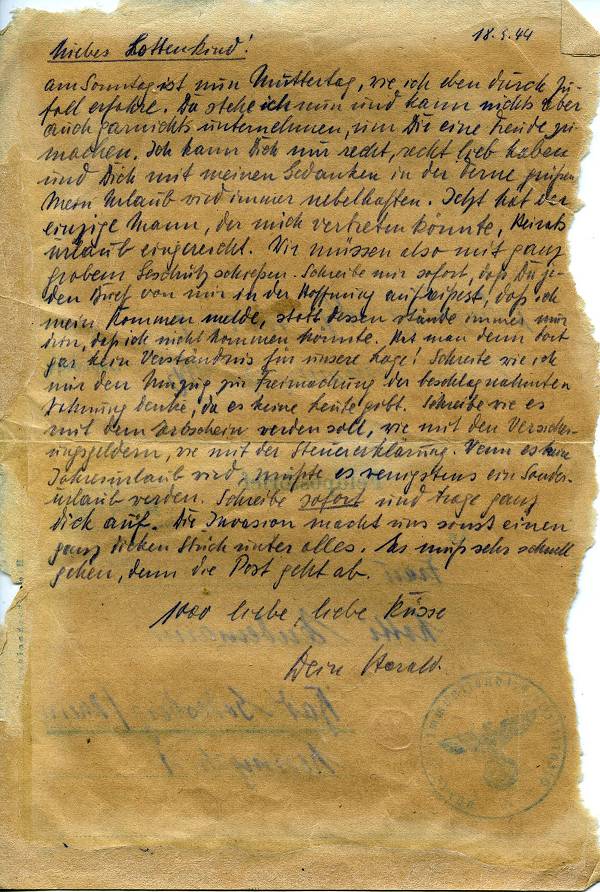 18.5.44
Liebes Lottenkind!
am Sonntag ist nun Muttertag, wie ich eben durch Zu-
fall erfahre. Da stehe ich nun und kann nichts aber
auch garnichts unternehmen, um Dir eine Freude zu
machen. Ich kann Dich nur recht, recht lieb haben
und Dich mit meinen Gedanken in der Ferne grüßen
Mein Urlaub wird immer nebelhafter. Jetzt hat der
einzige Mann, der mich vertreten könnte, Heirats
urlaub eingereicht. Wir müssen also mit ganz
grobem Geschütz schießen. Schreibe mir sofort, daß Du je-
den Brief von mir in der Hoffnung aufreißest, daß ich
mein Kommen melde, statt dessen stände immer nur
drin, daß ich nicht kommen könnte. Hat man denn dort
gar kein Verständnis für unsere Lage! Schreibe wie ich
mir den Umzug zur Freimachung der beschlagnahmten
Wohnung denke, da es keine Leute gibt. Schreibe wie es
mit dem Erbschein werden soll, wie mit den Versicher-
ungsgeldern, wie mit der Steuererklärung. Wenn es kein
Jahresurlaub wird, müßte es wenigstens ein Sonder-
urlaub werden. Schreibe sofort und trage ganz
dick auf. Die Invasion macht uns sonst einen
ganz dicken Strich unter alles. Es muß sehr schnell
gehen, denn die Post geht ab.
1000 liebe, liebe Küsse
Dein Harald.
Frau